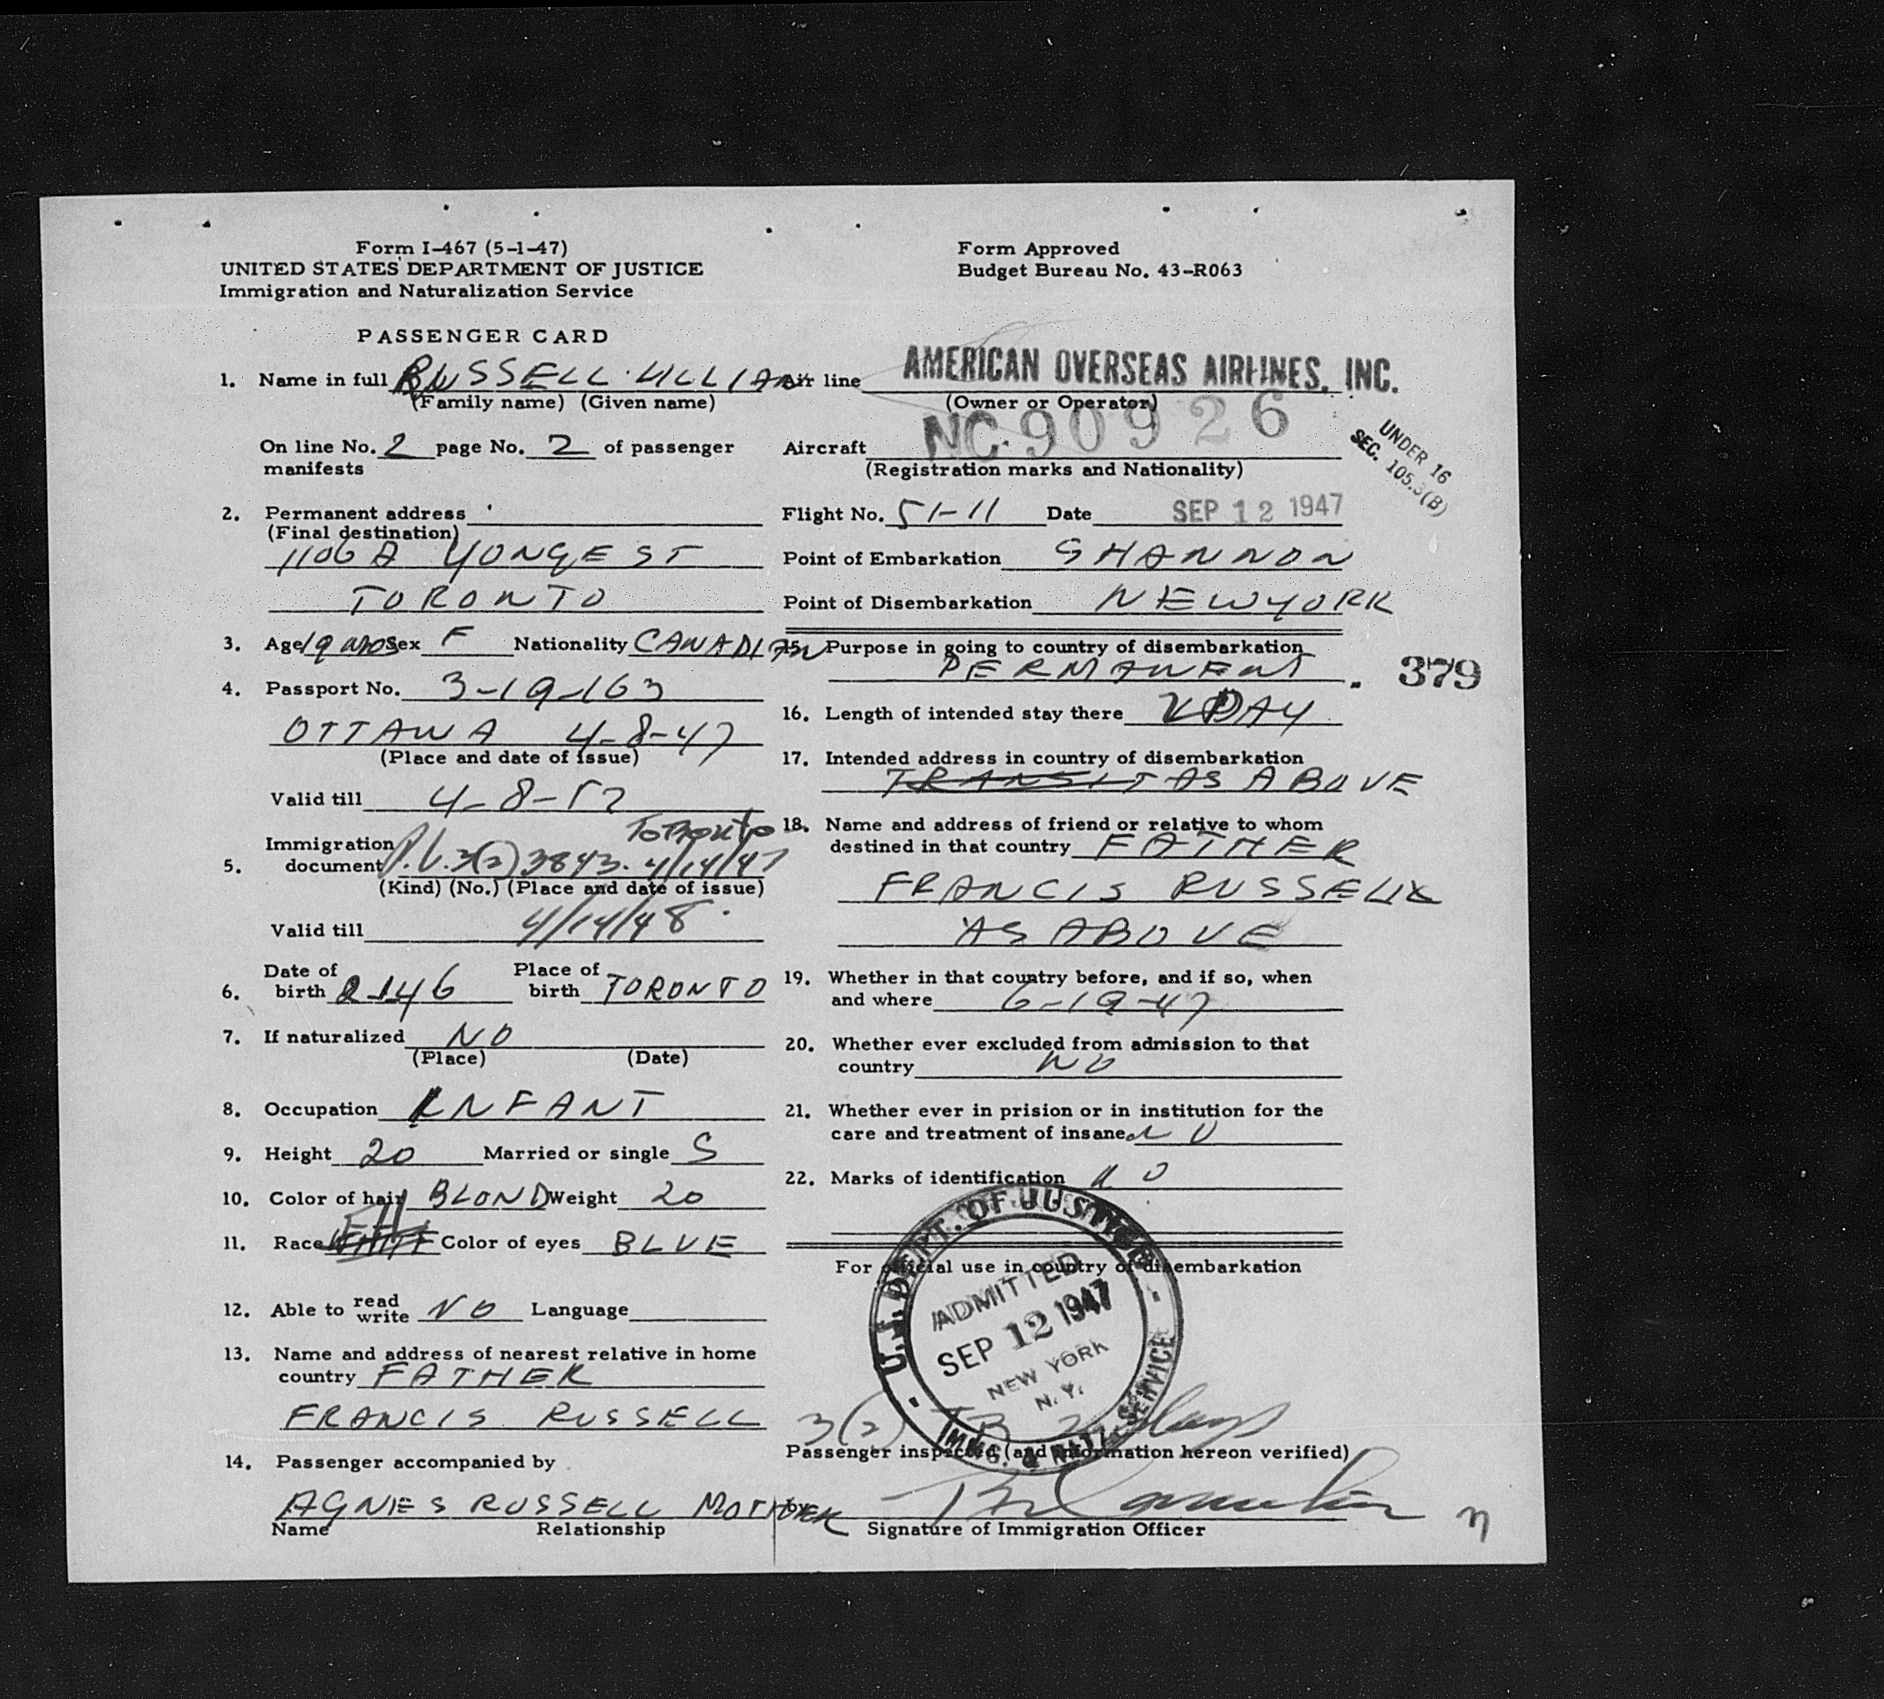 Form I-467 (5-1-47)
UNITED STATES DEPARTMENT OF JUSTICE
Immigration and Naturalization Service
Form Approved
Budget Bureau No. 43-R063
PASSENGER CARD
1. Name in full RUSSELL LILLIAN
(Family name) (Given name)
On line No. 2 page No. 2 of passenger
manifests
2. Permanent address
(Final destination)
1106 A YONGE ST
TORONTO
3. Age 19 MOS Sex F Nationality CANADIAN
4. Passport No. 3-19-163
OTTAWA 4-8-47
(Place and date of issue)
Valid till 4-8-52
Toronto
Immigration
5. document P.L. 3(2) 3843. 4/14/47
(Kind) (No.) (Place and date of issue)
Valid till 4/14/48
6. Date of birth 2-1-46 Place of birth TORONTO
7. If naturalized NO
(Place) (Date)
8. Occupation INFANT
9. Height 20 Married or single S
10. Color of hair BLOND Weight 20
11. Race Color of eyes BLUE
12. Able to read write NO Language
13. Name and address of nearest relative in home
country FATHER
FRANCIS RUSSELL
14. Passenger accompanied by
AGNES RUSSELL MOTHER
Name Relationship
Air line AMERICAN OVERSEAS AIRLINES, INC.
(Owner or Operator)
Aircraft NC 90926
(Registration marks and Nationality)
UNDER 16
SEC. 105.3(B)
Flight No. 51-11 Date SEP 12 1947
Point of Embarkation SHANNON
Point of Disembarkation NEW YORK
15. Purpose in going to country of disembarkation
PERMANENT
379
16. Length of intended stay there DAY
17. Intended address in country of disembarkation
TRANSIT AS ABOVE
18. Name and address of friend or relative to whom
destined in that country FATHER
FRANCIS RUSSELL
AS ABOVE
19. Whether in that country before, and if so, when
and where 6-19-47
20. Whether ever excluded from admission to that
country NO
21. Whether ever in prision or in institution for the
care and treatment of insane NO
22. Marks of identification NO
For official use in country of disembarkation
U.S. DEPT. OF JUSTICE
ADMITTED
SEP 12 1947
NEW YORK
N.Y.
IMMG. & NATZ. SERVICE
3(2) 2 days
Passenger inspected (and information hereon verified)
by
Signature of Immigration Officer